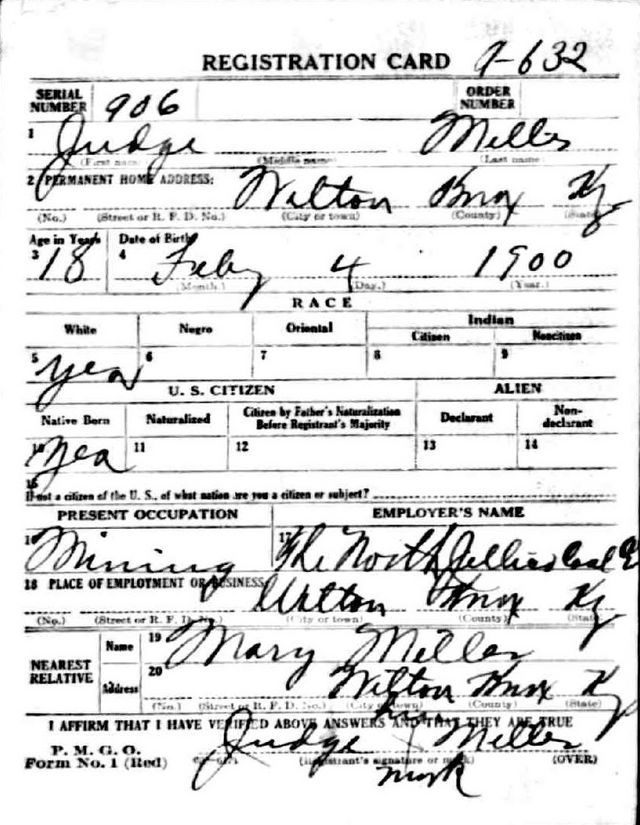 REGISTRATION CARD 9-632
SERIAL NUMBER 906 ORDER NUMBER
1 Judge Miller
(First name) (Middle name) (Last name)
2 PERMANENT HOME ADDRESS: Wilton Knox Ky
(No.) (Street or R. F. D. No.) (City or town) (County) (State)
Age in Years Date of Birth
3 18 4 Feby 4 1900
(Month.) (Day.) (Year.)
RACE
White Negro Oriental Indian
Citizen Noncitizen
5 yea 6 7 8 9
U. S. CITIZEN ALIEN
Native Born Naturalized Citizen by Father's Naturalization Before Registrant's Majority Declarant Non-declarant
10 yea 11 12 13 14
15
If not a citizen of the U. S., of what nation are you a citizen or subject?
PRESENT OCCUPATION EMPLOYER'S NAME
16 Mining 17 The North Jellico Coal
18 PLACE OF EMPLOYMENT OR BUSINESS
Wilton Knox Ky
(No.) (Street or R. F. D. No.) (City or town) (County) (State)
NEAREST RELATIVE
Name 19 Mary Miller
Address 20 Wilton Knox Ky
(No.) (Street or R. F. D. No.) (City or town) (County) (State)
I AFFIRM THAT I HAVE VERIFIED ABOVE ANSWERS AND THAT THEY ARE TRUE
Judge Miller
P. M. G. O.
Form No. 1 (Red) (Registrant's signature or mark) (OVER)
mark